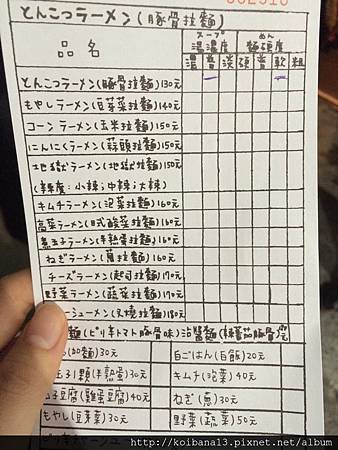 とんこつラーメン(豚骨拉麵)
品名 スープ 湯濃度 めん 麵硬度
濃 普 淡 硬 普 軟 粗
とんこつラーメン(豚骨拉麵)130元
もやしラーメン(豆芽菜拉麵)140元
コーンラーメン(玉米拉麵)150元
にんにくラーメン(蒜頭拉麵)150元
地獄ラーメン(地獄拉麵)150元
(辣度:小辣;中辣;大辣)
キムチラーメン(泡菜拉麵)160元
高菜ラーメン(日式酸菜拉麵)160元
煮玉子ラーメン(半熟蛋拉麵)160元
ねぎラーメン(蔥拉麵)160元
チーズラーメン(起司拉麵)170元
野菜ラーメン(蔬菜拉麵)170元
ーシューメン(叉燒拉麵)180元
麵(ピリ辛トマト豚骨味)沾醬麵(辣蕃茄豚骨)
(加麵)30元 白ごはん(白飯)20元
玉子1顆(半熟蛋)30元 キムチ(泡菜)40元
子豆腐(雞蛋豆腐)40元 ねぎ(蔥)30元
もやし(豆芽菜)30元 野菜(蔬菜)50元
http://koibana13.pixnet.net/album